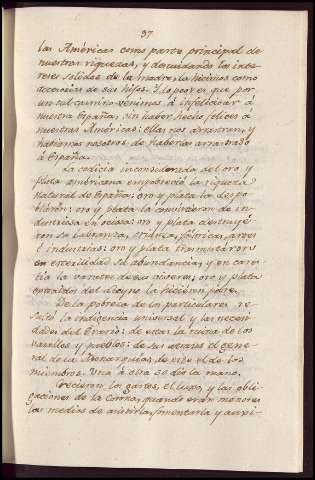 37
las Américas como parte principal de
nuestras riquezas, y descuidando los inte-
reses solidos de la madre, la hicimos como
accesorias de sus hijas. Y lo peor es que por
un tal camino venimos á infelicitar á
nuestra España, sin haber hecho felices á
nuestras Américas: ellas nos arrastran, y
habiamos nosotros de haberlas arrastrado
á España.
La codicia inconsiderada del oro y
plata americana empobreció la riqueza
natural de España: oro y plata la despo-
blaron: oro y plata la convirtieron de in-
dustriosa en ociosa: oro y plata destruye-
ron su labranza, crianza, fábricas, artes
é industrias: oro y plata transmutaron
en esterilidad su abundancia, y en cares-
tia la baratez de sus viveres: oro y plata
extraidos del Reyno la hicieron pobre.
De la pobreza de los particulares re-
sultó la indigencia universal y las necesi-
dades del Erario: de estas la ruina de los
vasallos y pueblos: de sus atrasos el gene-
ral de la Monarquía; de este el de los
miembros. Una á otra se dió la mano.
Crecieron los gastos, el luxo, y las obli-
gaciones de la Corona, quando eran menores
los medios de asistirla, fomentarla y auxi-